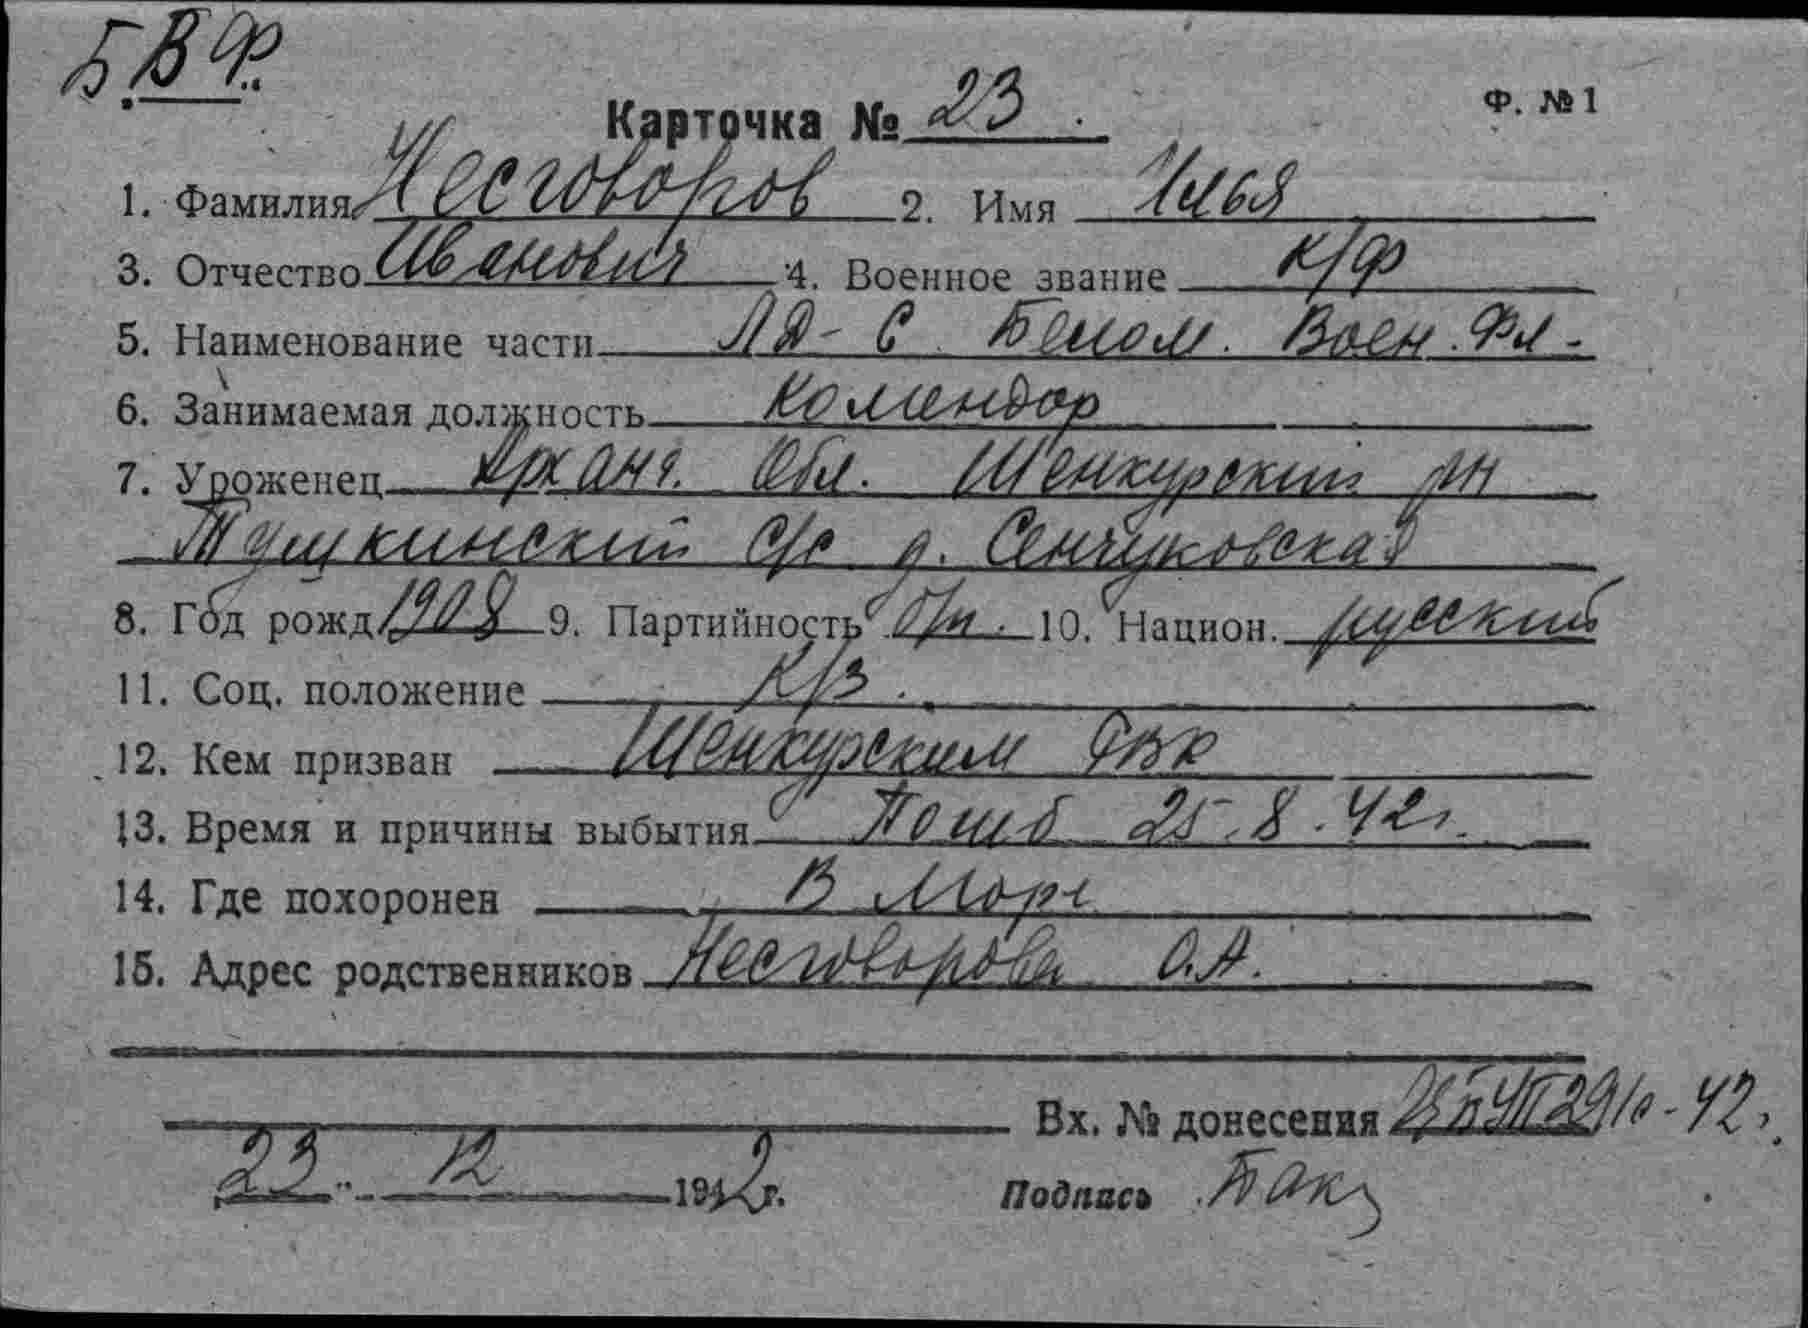 БВФ.
Карточка № 23. Ф. №1
1. Фамилия Несговоров 2. Имя Илья
3. Отчество Иванович 4. Военное звание к/ф
5. Наименование части ЛД-6 Белом. Воен. Фл.
6. Занимаемая должность комендор
7. Уроженец Арханг. Обл. Шенкурский рн
с/с д.
8. Год рожд 1908 9. Партийность б/п. 10. Национ. русский
11. Соц. положение К/з.
12. Кем призван Шенкурским РВК
13. Время и причины выбытия Погиб 25.8.42г.
14. Где похоронен В море
15. Адрес родственников Несговорова О.А.
Вх. № донесения
23 12 1942г. Подпись